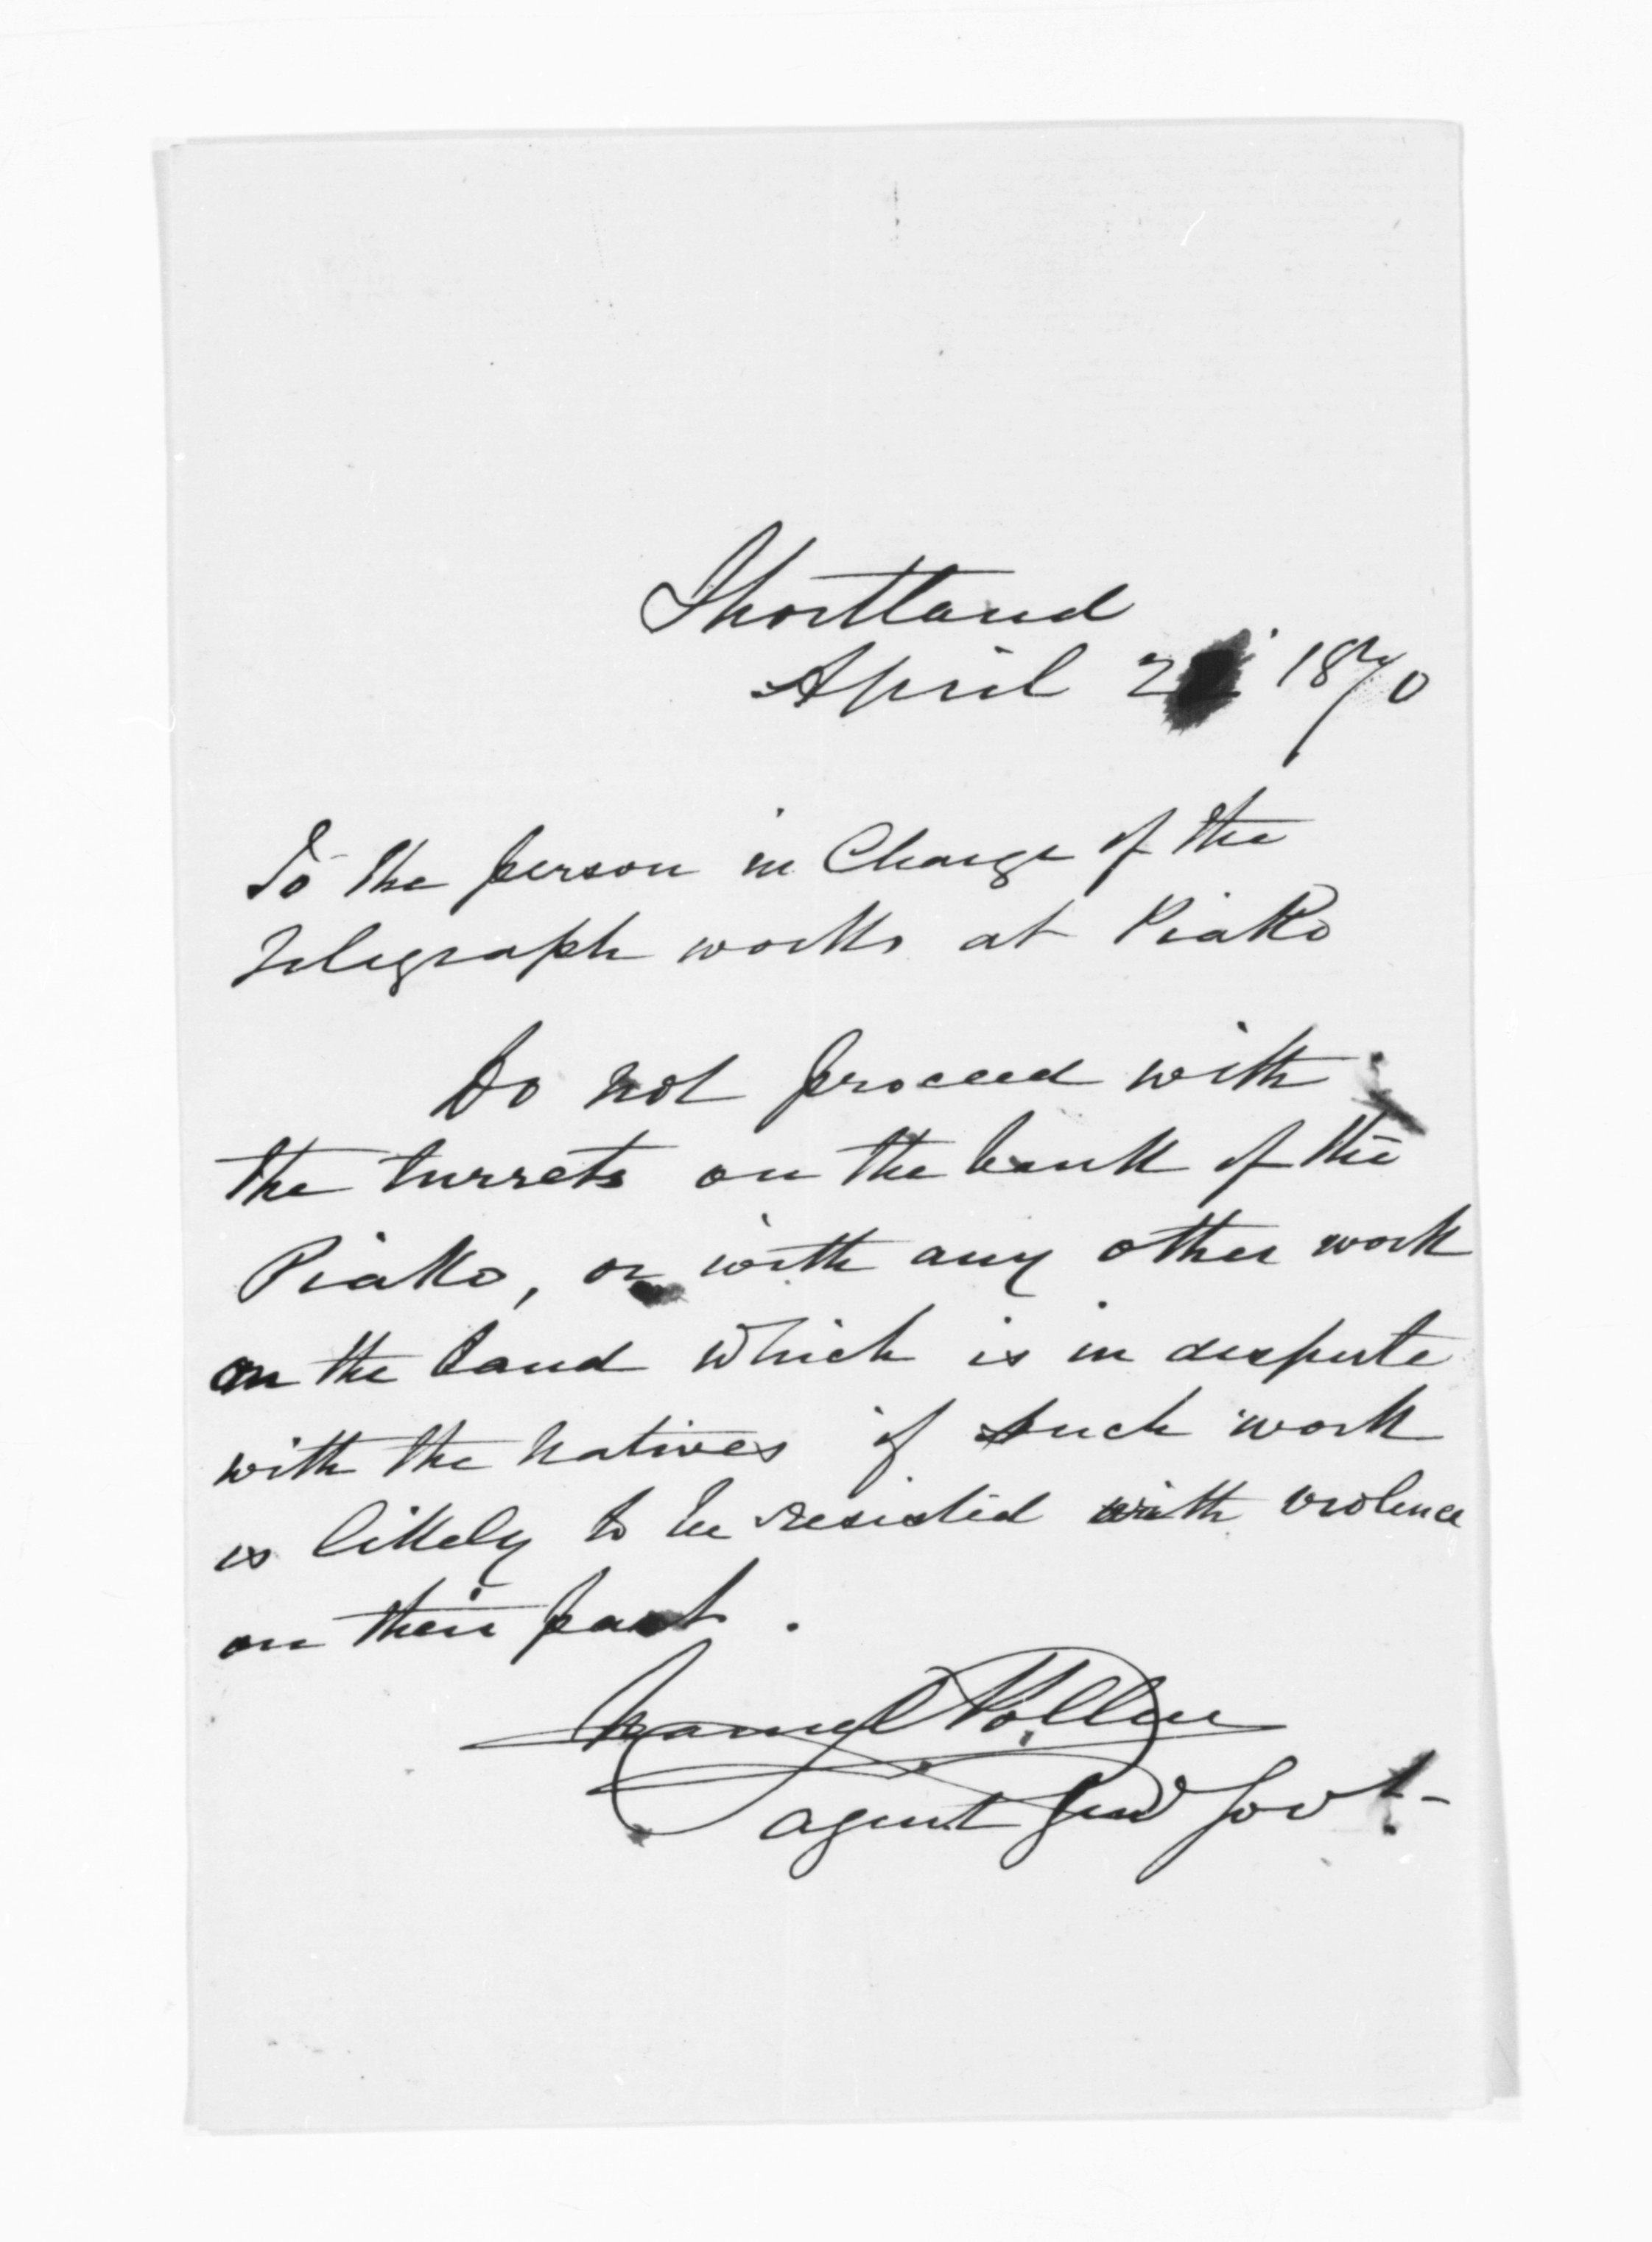 Shortland
April 2 1870
To the person in Charge of the
Telegraph works at Piako
Do not proceed with
the turrets on the bank of the
Piako, or with any other work
on the land which is in dispute
with the natives if such work
is likely to be resisted with violence
on their part.
Daniel Pollen
agent Genl Govt